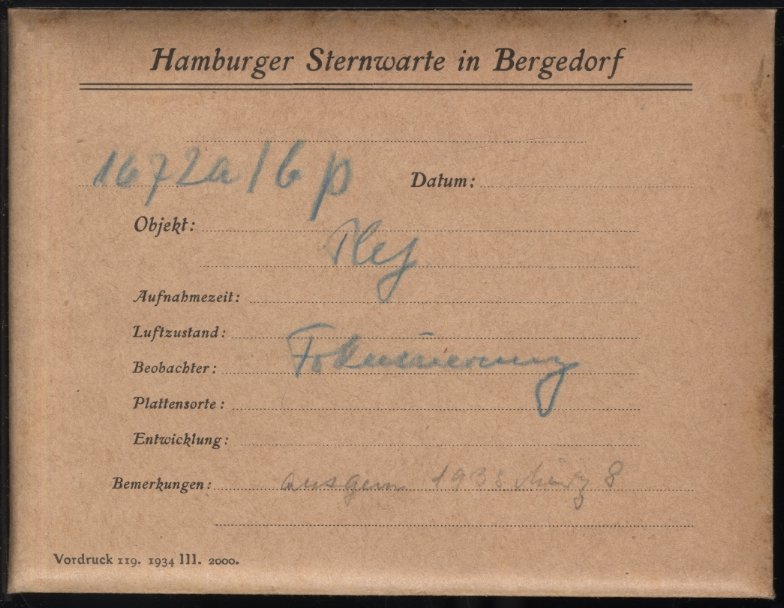 Hamburger Sternwarte in Bergedorf
1672a/b p Datum:
Objekt: Plej
Aufnahmezeit:
Luftzustand:
Beobachter: Fokussierung
Plattensorte:
Entwicklung:
Bemerkungen: ausgem 1938 März 8
Vordruck 119. 1934 III. 2000.